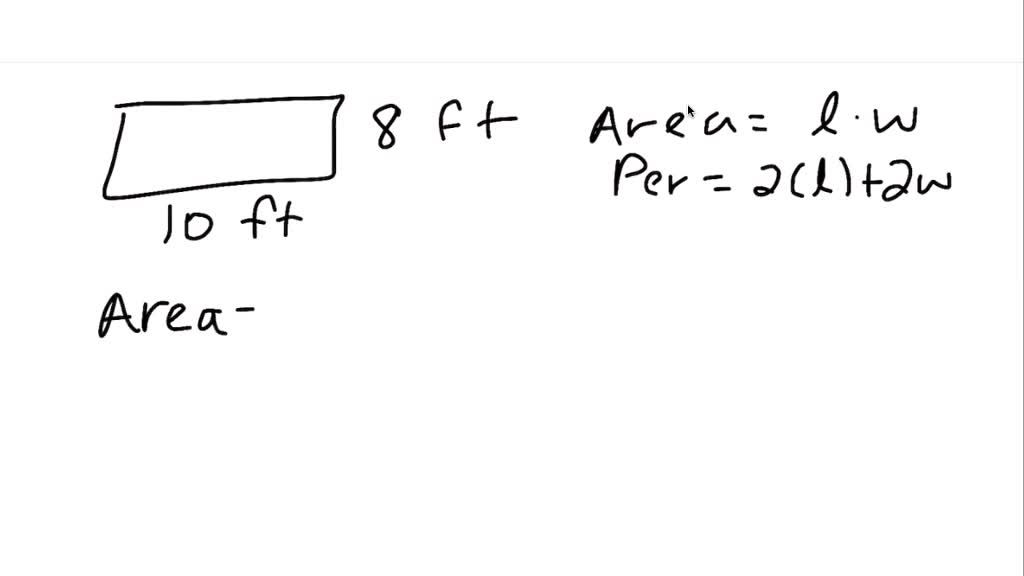 8 ft
10 ft
Area= l·w
Per = 2(l)+2w
Area-